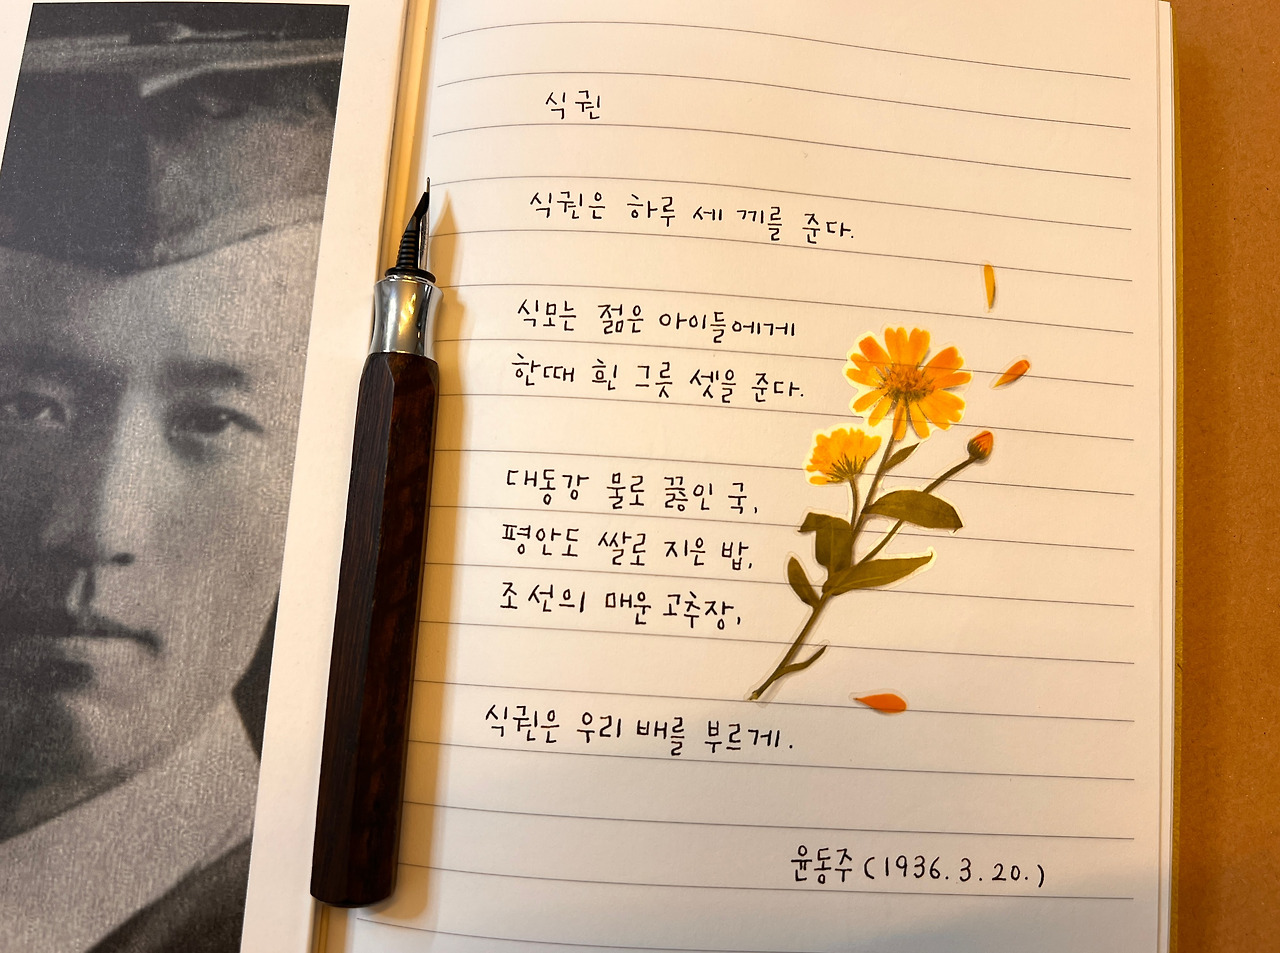 식권
식권은 하루 세 끼를 준다.
식모는 젊은 아이들에게
한때 흰 그릇 셋을 준다.
대동강 물로 끓인 국,
평안도 쌀로 지은 밥,
조선의 매운 고추장,
식권은 우리 배를 부르게.
윤동주 (1936. 3. 20.)